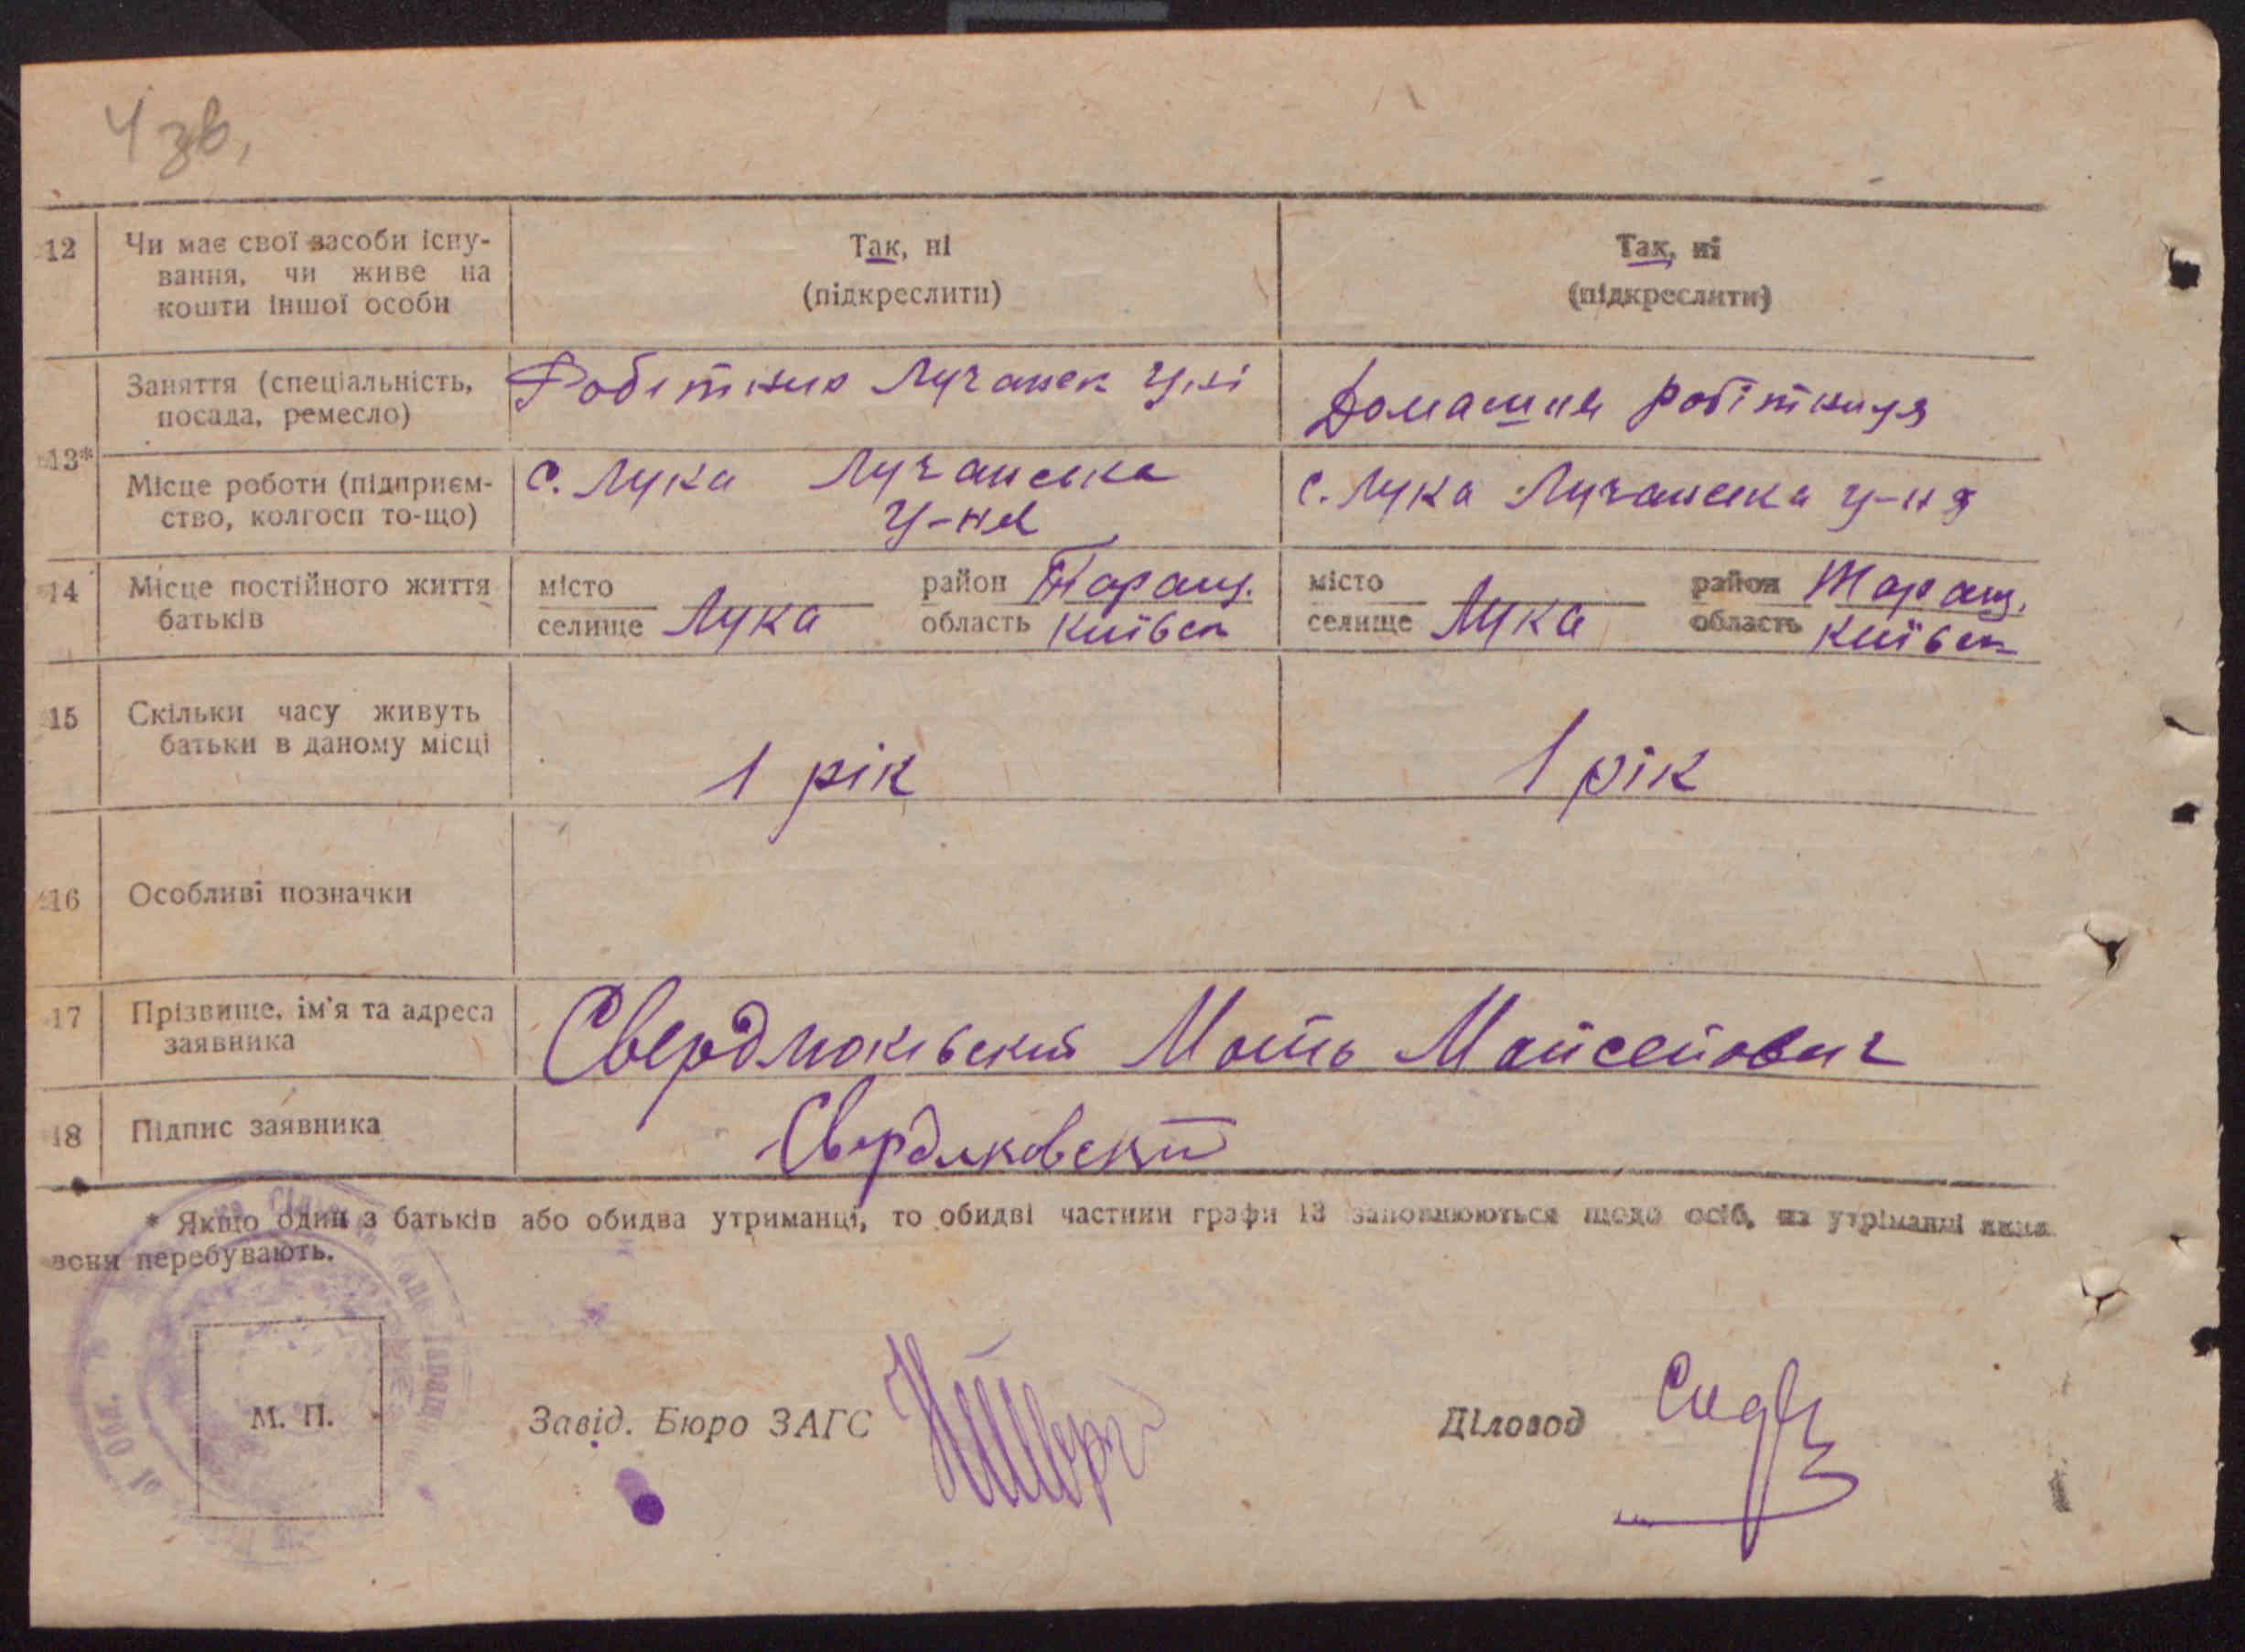 4 зв,
12 Чи має свої засоби існу-
вання, чи живе на
кошти іншої особи
Так, ні
(підкреслити)
Так, ні
(підкреслити)
13*
Заняття (спеціальність,
посада, ремесло)
Робітник Лучанск
Домашня робітниця
Місце роботи (підприєм-
ство, колгосп то-що)
С. Лука Лучанська
У-ня
С. Лука Лучанська у-ня
14 Місце постійного життя
батьків
місто
селище Лука
район Таращ.
область Київск
місто
селище Лука
район Таращ.
область Київск
15 Скільки часу живуть
батьки в даному місці
1 рік
1 рік
16 Особливі позначки
17 Прізвище, ім'я та адреса
заявника
Мойсейович
18 Підпис заявника
* Якщо один з батьків або обидва утриманці, то обидві частини графи 13 заповнюються щодо осіб, на утріманні яких
вони перебувають.
М. П.
Завід. Бюро ЗАГС
Діловод